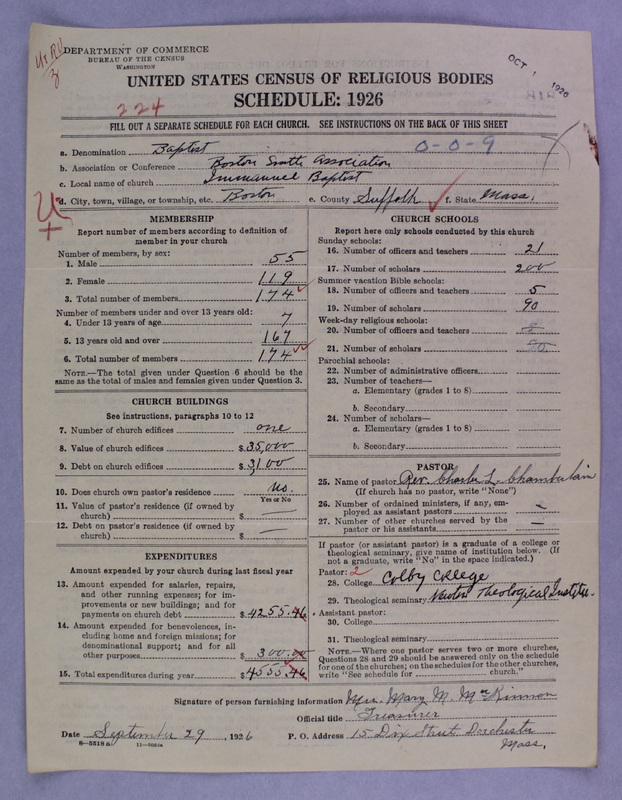 U+RU
3
DEPARTMENT OF COMMERCE
BUREAU OF THE CENSUS
WASHINGTON
OCT 1 1926
UNITED STATES CENSUS OF RELIGIOUS BODIES
224
SCHEDULE: 1926
FILL OUT A SEPARATE SCHEDULE FOR EACH CHURCH. SEE INSTRUCTIONS ON THE BACK OF THIS SHEET
a. Denomination Baptist 0-0-9
b. Association or Conference Boston South Association
c. Local name of church Immanuel Baptist
d. City, town, village, or township, etc. Boston e. County Suffolk f. State Mass.
MEMBERSHIP
Report number of members according to definition of
member in your church
Number of members, by sex:
1. Male 55
2. Female 119
3. Total number of members 174
Number of members under and over 13 years old:
4. Under 13 years of age 7
5. 13 years old and over 167
6. Total number of members 174
NOTE.—The total given under Question 6 should be
same as the total of males and females given under Question 3.
CHURCH BUILDINGS
See instructions, paragraphs 10 to 12
7. Number of church edifices one
8. Value of church edifices $35,000
9. Debt on church edifices $3100
10. Does church own pastor's residence No.
Yes or No
11. Value of pastor's residence (if owned by
church) $ —
12. Debt on pastor's residence (if owned by
church) $ —
EXPENDITURES
Amount expended by your church during last fiscal year
13. Amount expended for salaries, repairs,
and other running expenses; for im-
provements or new buildings; and for
payments on church debt $4255.46
14. Amount expended for benevolences, in-
cluding home and foreign missions; for
denominational support; and for all
other purposes 300.00
15. Total expenditures during year $4555.46
CHURCH SCHOOLS
Report here only schools conducted by this church
Sunday schools:
16. Number of officers and teachers 21
17. Number of scholars 200
Summer vacation Bible schools:
18. Number of officers and teachers 5
19. Number of scholars 90
Week-day religious schools:
20. Number of officers and teachers
21. Number of scholars
Parochial schools:
22. Number of administrative officers
23. Number of teachers—
a. Elementary (grades 1 to 8)
b. Secondary
24. Number of scholars—
a. Elementary (grades 1 to 8)
b. Secondary
PASTOR
25. Name of pastor Rev. Charles L. Chamberlain
(If church has no pastor, write "None")
26. Number of ordained ministers, if any, em-
ployed as assistant pastors —
27. Number of other churches served by the
pastor or his assistants —
If pastor (or assistant pastor) is a graduate of a college or
theological seminary, give name of institution below. (If
not a graduate, write "No" in the space indicated.)
Pastor: 2
28. College Colby College
29. Theological seminary Newton Theological Institu-
Assistant pastor:
30. College
31. Theological seminary
NOTE.—Where one pastor serves two or more churches,
Questions 28 and 29 should be answered only on the schedule
for one of the churches; on the schedules for the other churches,
write "See schedule for church."
Signature of person furnishing information Mrs. Mary M. McKinnon
Official title Treasurer
Date September 29, 1926 P. O. Address 15 Dix Street Dorchester
Mass.
8—5518a 11—9024a